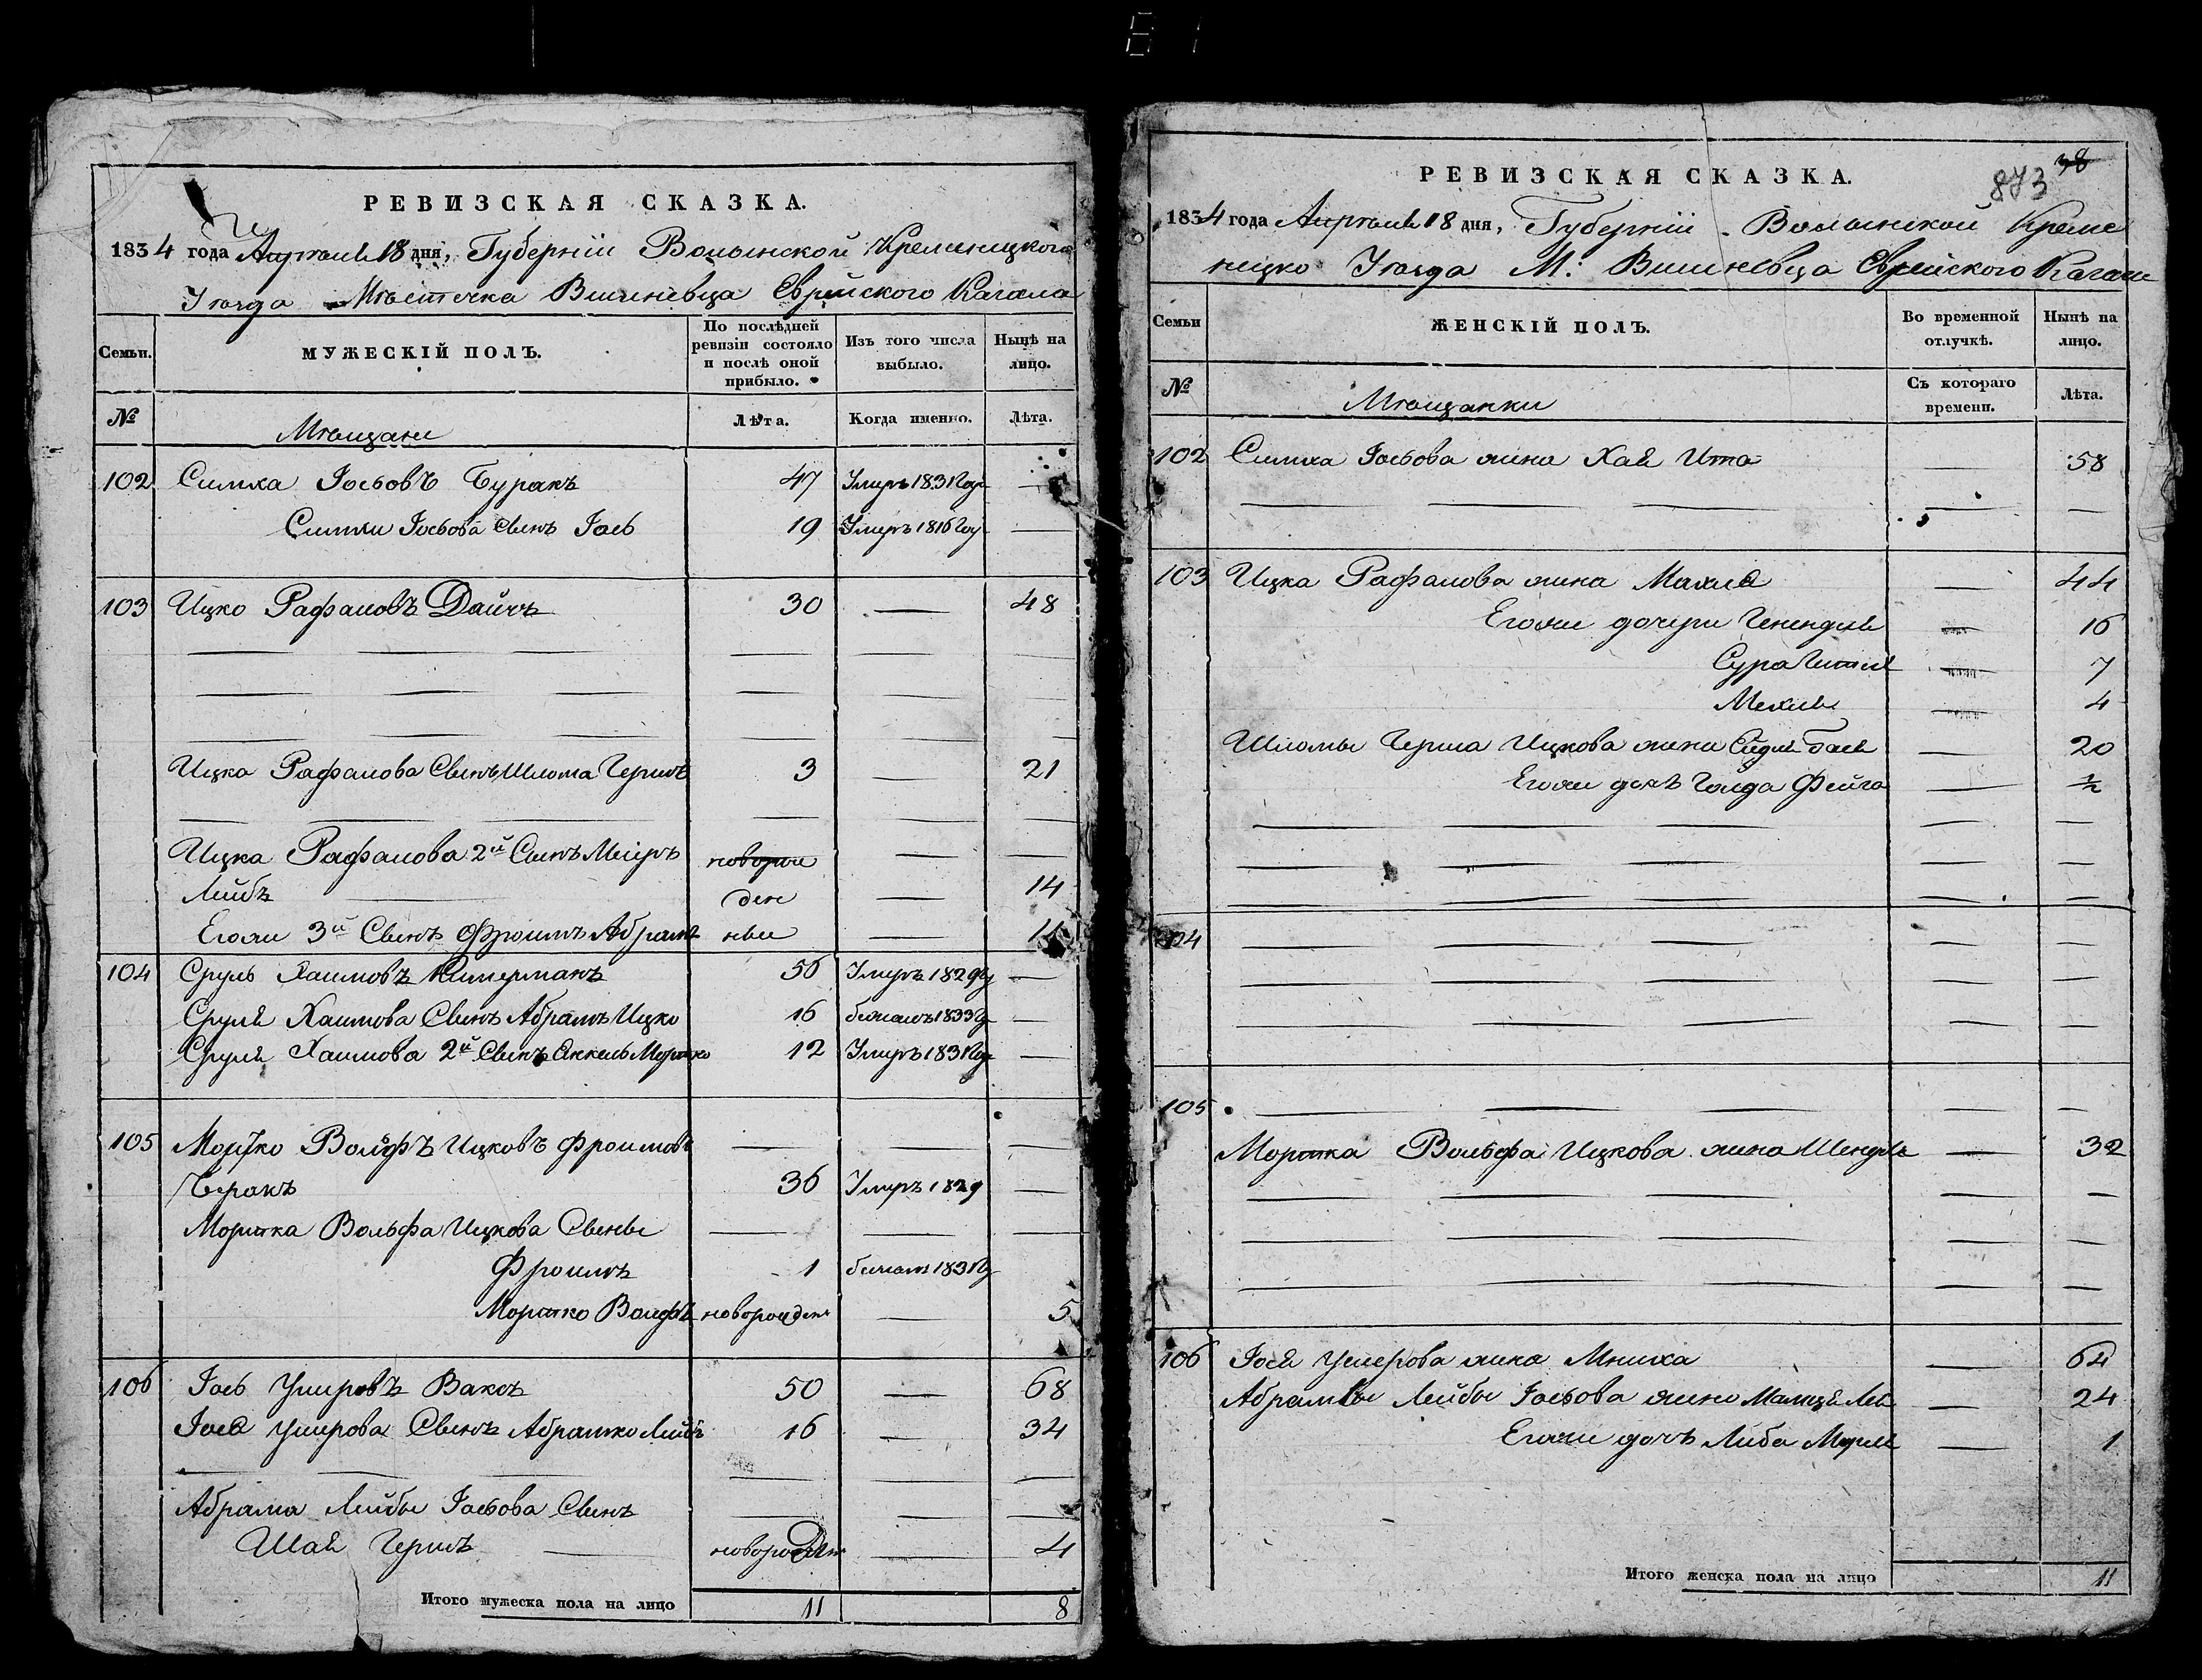 РЕВИЗСКАЯ СКАЗКА.
1834 года Апрѣля 18 дня, Губерніи Волынской Кременицкого
Уѣзда Мѣстечка Вишневца Еврейского Кагала
Семьи.
МУЖЕСКІЙ ПОЛЪ.
По послѣдней ревизіи состояло и послѣ оной прибыло.
Изъ того числа выбыло.
Нынѣ на лицо.
№
Мѣщане
Лѣта.
Когда именно.
Лѣта.
102 Симха Іосьовъ Буракъ 47 Умеръ 1831 Год —
Симхи Іосьова Сынъ Іось 19 Умеръ 1816 Год —
103 Ицко Рафаловъ Дайчъ 30 — 48
Ицка Рафалова Сынъ Шлома Гершъ 3 — 21
Ицка Рафалова 2й Сынъ Меіеръ новорож — —
Лейбъ — ден — 14
Егожъ 3й Сынъ Фроимъ Абрамъ ные — 11
104 Сруль Хаимовъ 56 Умеръ 1829 —
Сруля Хаимова Сынъ Абрамъ Ицко 16 бежалъ 1833 —
Сруля Хаимова 2й Сынъ Янкель Мортко 12 Умеръ 1831 Год —
105 Мортко Вольфъ Ицковъ Фроимовъ — — —
36 Умеръ 1829 —
Мортка Вольфа Ицкова Сыны — — —
Фроимъ 1 бежалъ 1831
Мортко Вольфъ новорожден — 5
106 Іось Умеровъ Ваксъ 50 — 68
Іося Умерова Сынъ Абрамко Лейбъ 16 — 34
Абрама Лейбы Іосьова Сынъ — — —
Шая Гершъ — новорожден — 4
Итого мужеска пола на лицо 11 8
38
873
РЕВИЗСКАЯ СКАЗКА.
1834 года Апрѣля 18 дня, Губерніи Волынской Креме
ницко Уѣзда М: Вишневца Еврейского Кагала
Семьи
ЖЕНСКІЙ ПОЛЪ.
Во временной отлучкѣ.
Нынѣ на лицо.
№
Мѣщанки
Съ котораго времени.
Лѣта.
102 Симха Іосьова жена Хая Ита — 58
103 Ицка Рафалова жена Махля — 44
Егоже дочери Генендля — 16
Сура Гитля — 7
Мехля — 4
Шломы Герша Ицкова жена — 20
Егоже дочь Голда Фейга — ½
104
105
Мортка Вольфа Ицкова жена Шендля — 32
106 Іося Умерова жена — 64
Абрамы Лейбы Іосьова жена — 24
Егоже дочь Либа — 1
Итого женска пола на лицо 11